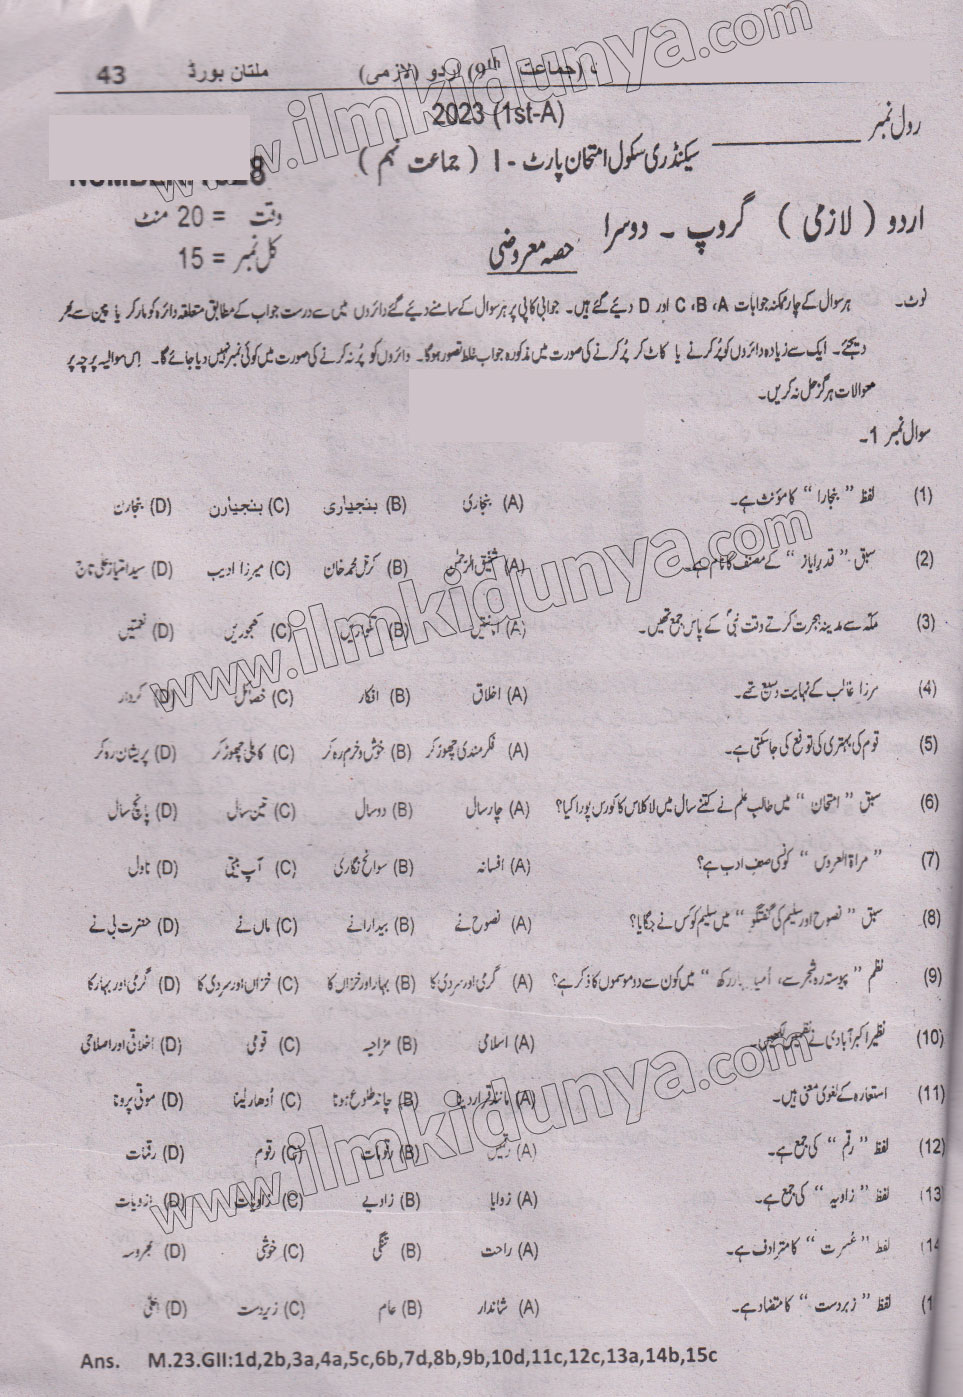 43 ملتان بورڈ (جماعت 9th) اردو (لازمی)
2023 (1st-A)
رول نمبر
سیکنڈری سکول امتحان پارٹ - I ( جماعت نہم )
وقت = 20 منٹ
اردو ( لازمی ) گروپ ۔ دوسرا
حصہ معروضی
کل نمبر = 15
نوٹ۔ ہر سوال کے چار ممکنہ جوابات A ،B ،C اور D دیئے گئے ہیں۔ جوابی کاپی پر ہر سوال کے سامنے دیئے گئے دائروں میں سے درست جواب کے مطابق متعلقہ دائرہ کو مارکر یا پین سے بھر
دیجئے۔ ایک سے زیادہ دائروں کو پُر کرنے یا کاٹ کر پُر کرنے کی صورت میں مذکورہ جواب غلط تصور ہوگا۔ دائروں کو پُر نہ کرنے کی صورت میں کوئی نمبر نہیں دیا جائے گا۔ اِس سوالیہ پرچہ پر
سوالات ہرگز حل نہ کریں۔
سوال نمبر 1۔
(1) لفظ " بنجارا " کا مؤنث ہے۔ (A) بنجاری (B) بنجیاری (C) بنجیارن (D) بنجارن
(2) سبق " قدرِ ایاز " کے مصنف کا نام ہے۔ (A) شفیق الرحمٰن (B) کرنل محمد خان (C) میرزا ادیب (D) سید امتیاز علی تاج
(3) مکہ سے مدینہ ہجرت کرتے وقت نبیؐ کے پاس جمع تھیں۔ (A) امانتیں (B) تلواریں (C) کھجوریں (D) نعمتیں
(4) مرزا غالب کے نہایت وسیع تھے۔ (A) اخلاق (B) افکار (C) خصائل (D) کردار
(5) قوم کی بہتری کی توقع کی جا سکتی ہے۔ (A) فکر مندی چھوڑ کر (B) خوش و خرم رہ کر (C) کاہلی چھوڑ کر (D) پریشان رہ کر
(6) سبق " امتحان " میں طالب علم نے کتنے سال میں لا کلاس کا کورس پورا کیا؟ (A) چار سال (B) دو سال (C) تین سال (D) پانچ سال
(7) " مراۃ العروس " کونسی صنفِ ادب ہے؟ (A) افسانہ (B) سوانح نگاری (C) آپ بیتی (D) ناول
(8) سبق " نصوح اور سلیم کی گفتگو " میں سلیم کو کس نے جگایا؟ (A) نصوح نے (B) بیدارا نے (C) ماں نے (D) حضرت بی نے
(9) نظم " پیوستہ رہ شجر سے، اُمیدِ بہار رکھ " میں کون سے دو موسموں کا ذکر ہے؟ (A) گرمی اور سردی کا (B) بہار اور خزاں کا (C) خزاں اور سردی کا (D) گرمی اور بہار کا
(10) نظیر اکبر آبادی نے نظمیں لکھیں۔ (A) اسلامی (B) مزاحیہ (C) قومی (D) اخلاقی اور اصلاحی
(11) استعارہ کے لغوی معنی ہیں۔ (A) مانند قرار دینا (B) چاند طلوع ہونا (C) اُدھار لینا (D) موتی پرونا
(12) لفظ " رقم " کی جمع ہے۔ (A) رقمیں (B) رقومات (C) رقوم (D) رقمات
(13 لفظ " زاویہ " کی جمع ہے۔ (A) زوایا (B) زاویے (C) زاویات (D) ازویات
(14 لفظ " عُسرت " کا مترادف ہے۔ (A) راحت (B) تنگی (C) خوشی (D) بھروسہ
(1 لفظ " زبردست " کا متضاد ہے۔ (A) شاندار (B) عام (C) زیردست (D) اعلیٰ
Ans. M.23.GII:1d,2b,3a,4a,5c,6b,7d,8b,9b,10d,11c,12c,13a,14b,15c
www.ilmkidunya.com
www.ilmkidunya.com
www.ilmkidunya.com